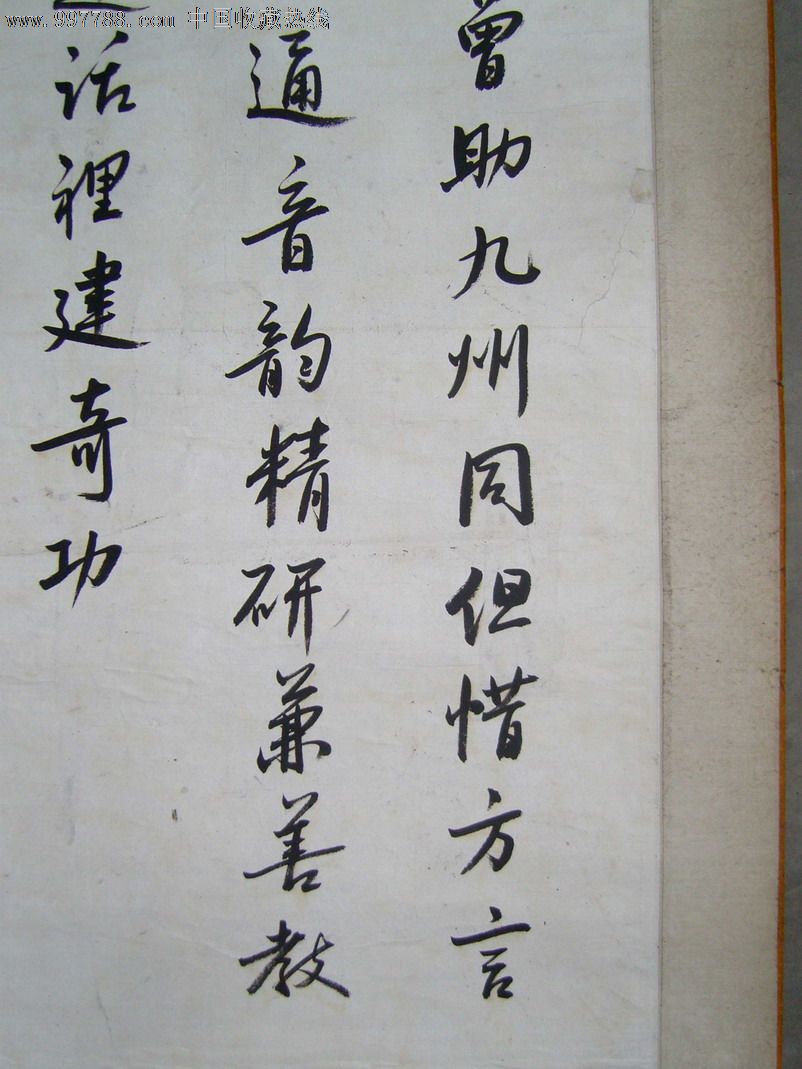 www.997788.com 中国收藏热线
曾助九州同但惜方言
通音韵精研兼善教
话裡建奇功